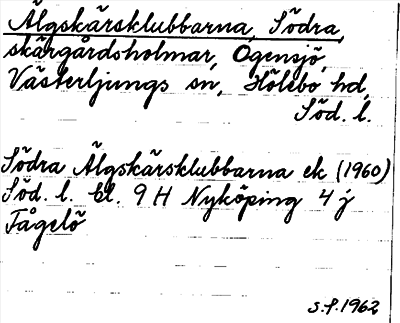 Älgskärsklubbarna, Södra,
skärgårdsholmar, Ögensjö,
Västerljungs sn, Hölebo hd,
Söd. l.
Södra Älgskärsklubbarna ek (1960)
Söd. l. bl. 9 H Nyköping 4 j
Fågelö
S.P. 1962